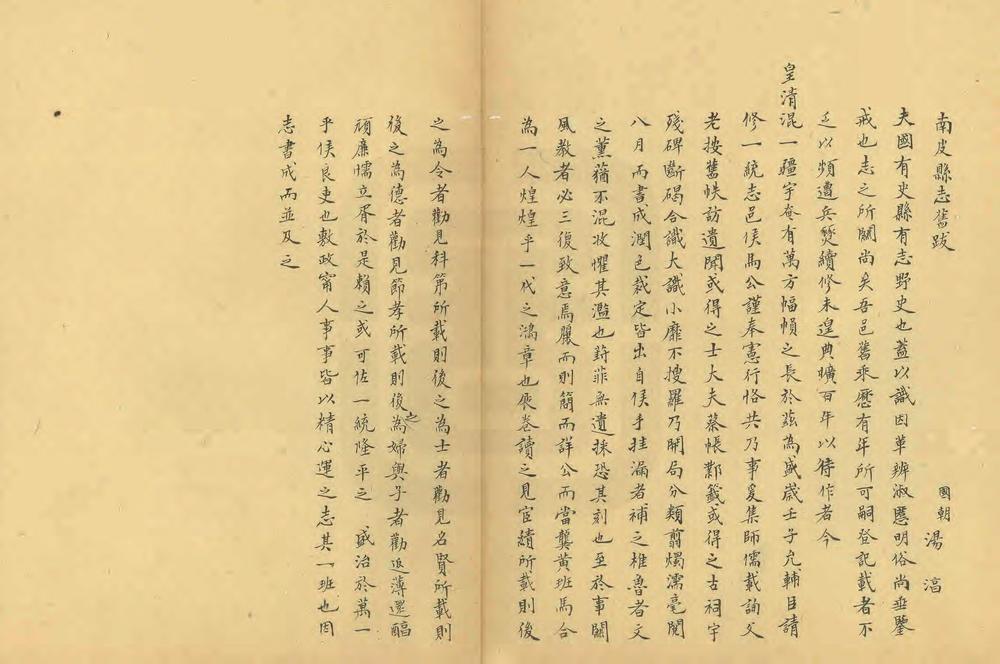 南皮縣志舊跋 國朝 湯滈
夫國有史縣有志野史也蓋以識因革辨淑慝明俗尚垂鑒
戒也志之所關尚矣吾邑舊乘歷有年所可嗣登記載者不
乏以頻遭兵燹續修未遑典曠百年以待作者今
皇清混一疆宇奄有萬方幅幀之長於茲為盛歲壬子允輔臣請
修一統志邑侯馬公謹奉憲行恪共乃事爰集師儒載詢父
老按舊帙訪遺聞或得之士大夫蔡帳鄴籤或得之古祠宇
殘碑斷碣合識大識小靡不搜羅乃開局分類翦燭濡毫閱
八月而書成潤色裁定皆出自侯手挂漏者補之椎魯者文
之薰蕕不混收懼其濫也葑菲無遺採恐其刻也至於事關
風教者必三復致意焉麗而則簡而詳公而當龔黃班馬合
為一人煌煌乎一代之鴻章也展卷讀之見宦績所載則後
之為令者勸見科第所載則後之為士者勸見名賢所載則
後之為德者勸見節孝所載則後之為婦與子者勸返薄還醇
頑廉懦立胥於是賴之或可佐一統隆平之 盛治於萬一
乎侯良吏也敷政甯人事事皆以精心運之志其一班也因
志書成而並及之